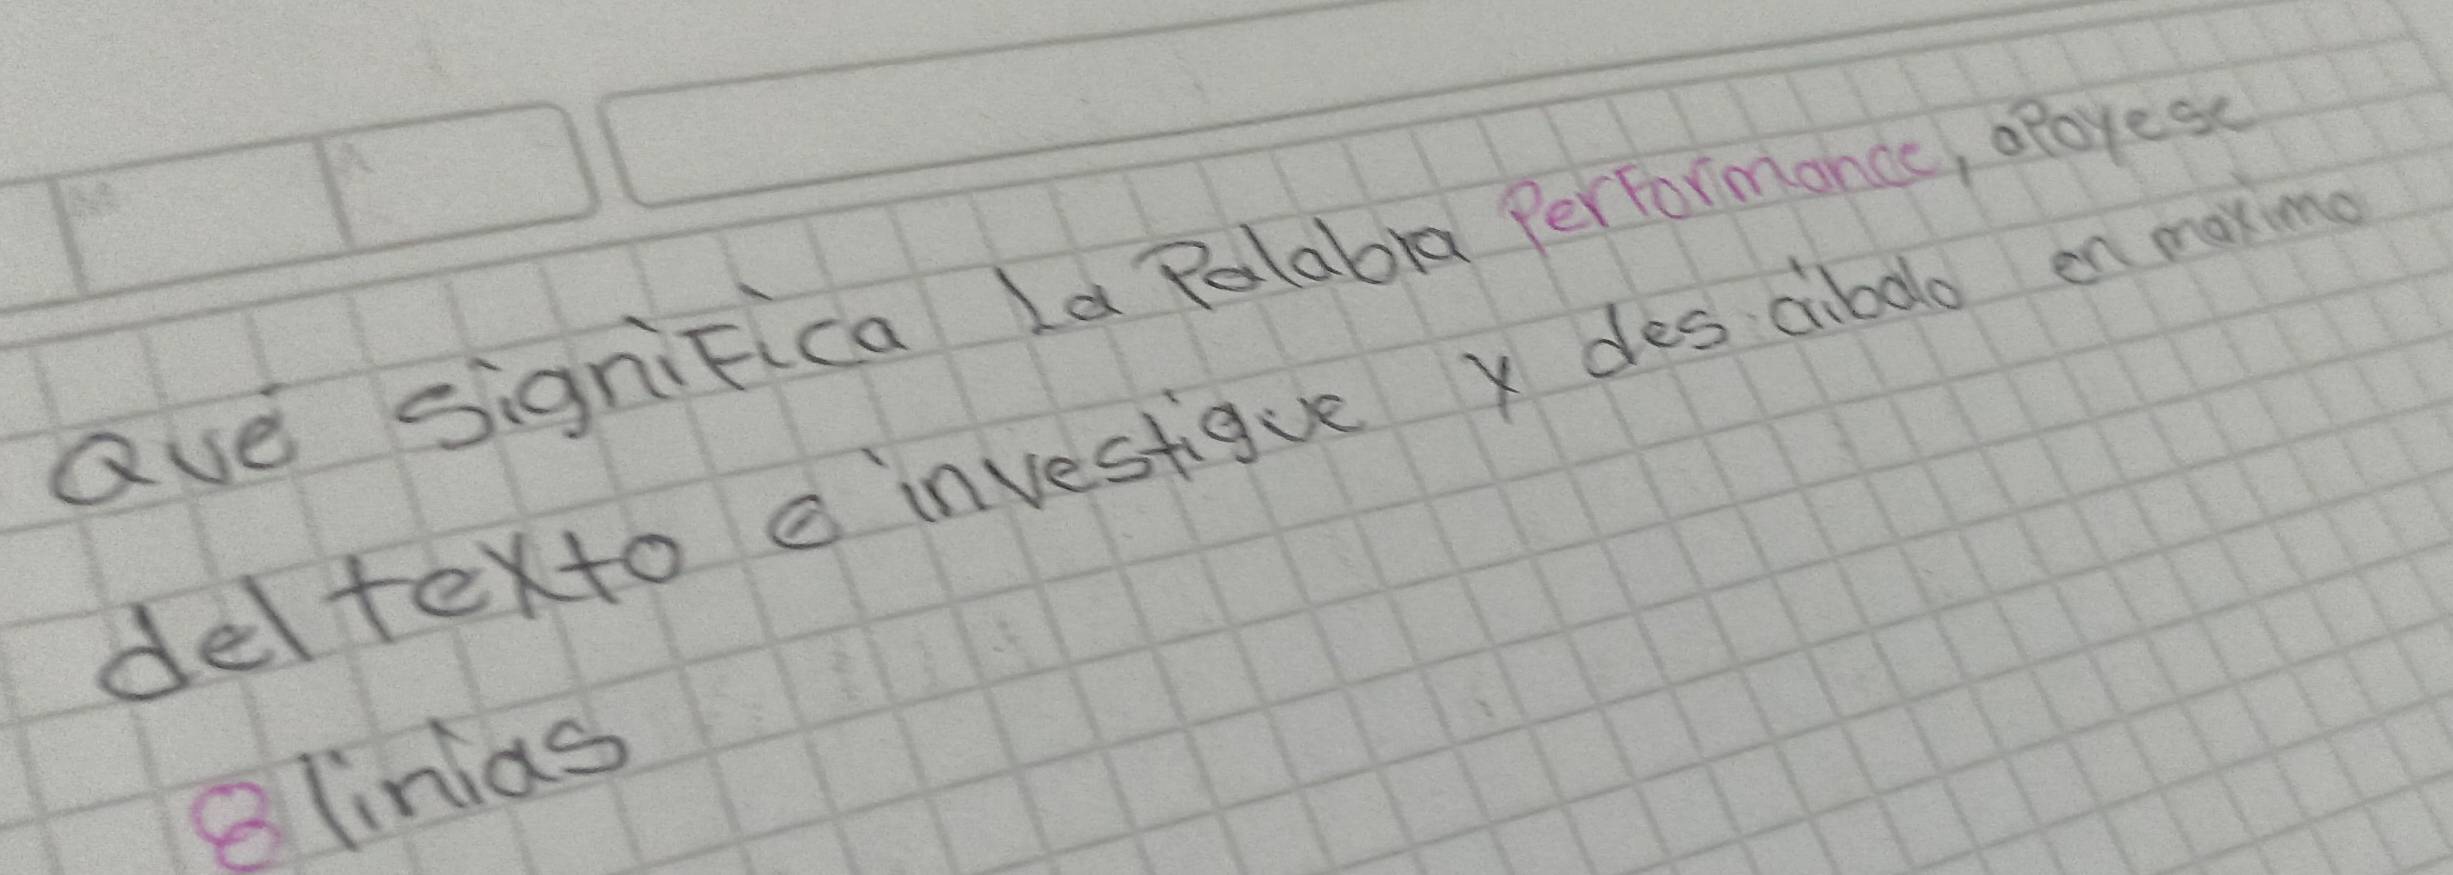 Qué significa la Palabra Performance, apoyese
del texto o investigue y descríbalo en maximo
8 linias